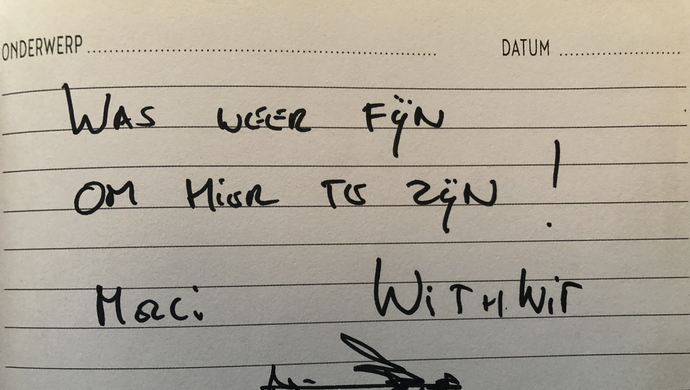 ONDERWERP DATUM
WAS WEER FIJN
OM HIER TE ZIJN!
MERCI WITHWIT